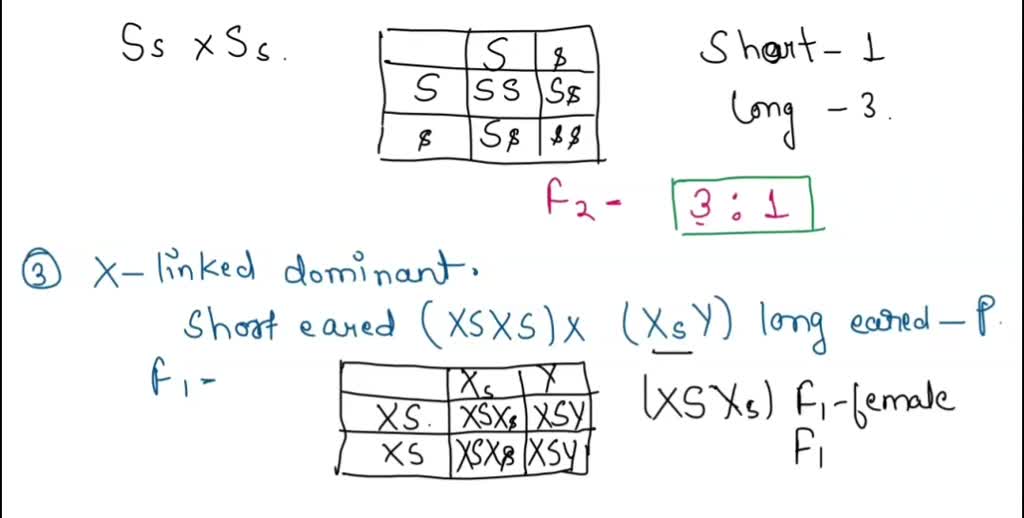 Ss x Ss.
S $
S SS S$
$ S$ $$
Short - 1
long - 3.
F2 - 3 : 1
③ X-linked dominant.
Short eared (XSXS) X (XsY) long eared - P.
F1 -
Xs Y
XS. XSX$ XSY
XS XSX$ XSY
(XSXs) F1-female
F1